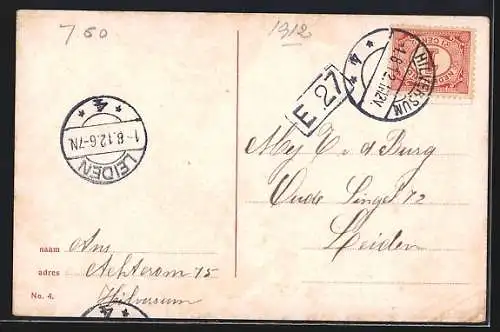 7 50
1912
E 27
HILVERSUM
1.8.12.1-12V.
4
NEDERLAND
Mej E v d Burg
Oude Singel 72
Leiden
4
1-8.12.6-7N.
LEIDEN
naam Ans
adres Achterom 75
No. 4. Hilversum
4